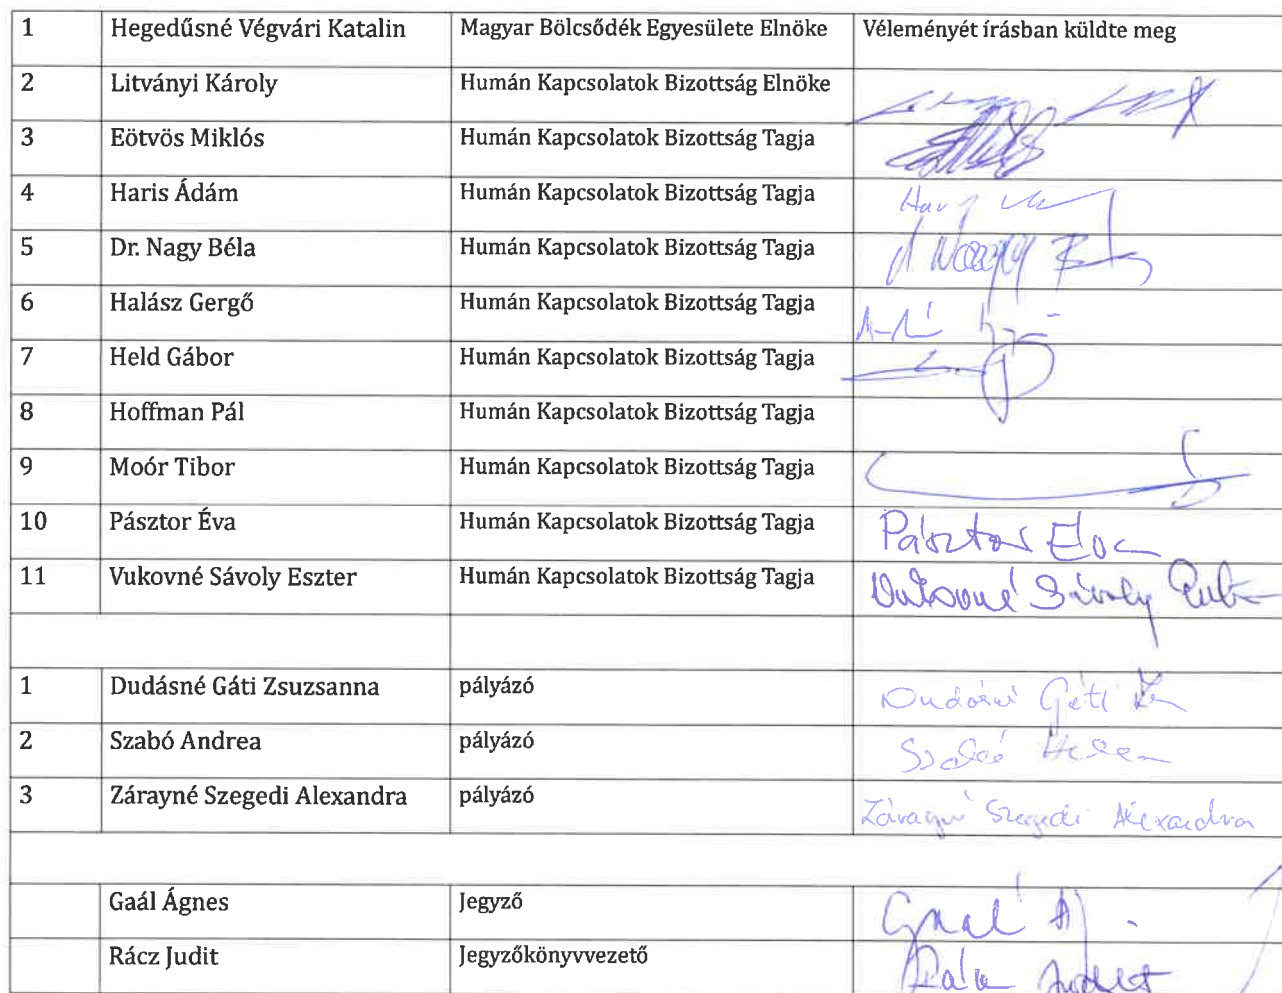 1 Hegedűsné Végvári Katalin Magyar Bölcsődék Egyesülete Elnöke Véleményét írásban küldte meg
2 Litványi Károly Humán Kapcsolatok Bizottság Elnöke
3 Eötvös Miklós Humán Kapcsolatok Bizottság Tagja
4 Haris Ádám Humán Kapcsolatok Bizottság Tagja
5 Dr. Nagy Béla Humán Kapcsolatok Bizottság Tagja
6 Halász Gergő Humán Kapcsolatok Bizottság Tagja
7 Held Gábor Humán Kapcsolatok Bizottság Tagja
8 Hoffman Pál Humán Kapcsolatok Bizottság Tagja
9 Moór Tibor Humán Kapcsolatok Bizottság Tagja
10 Pásztor Éva Humán Kapcsolatok Bizottság Tagja Pásztor Éva
11 Vukovné Sávoly Eszter Humán Kapcsolatok Bizottság Tagja Vukovné Sávoly
1 Dudásné Gáti Zsuzsanna pályázó Dudásné Gáti
2 Szabó Andrea pályázó Szabó
3 Zárayné Szegedi Alexandra pályázó Zárayné Szegedi Alexandra
Gaál Ágnes Jegyző Gaál Á
Rácz Judit Jegyzőkönyvvezető Rácz Judit